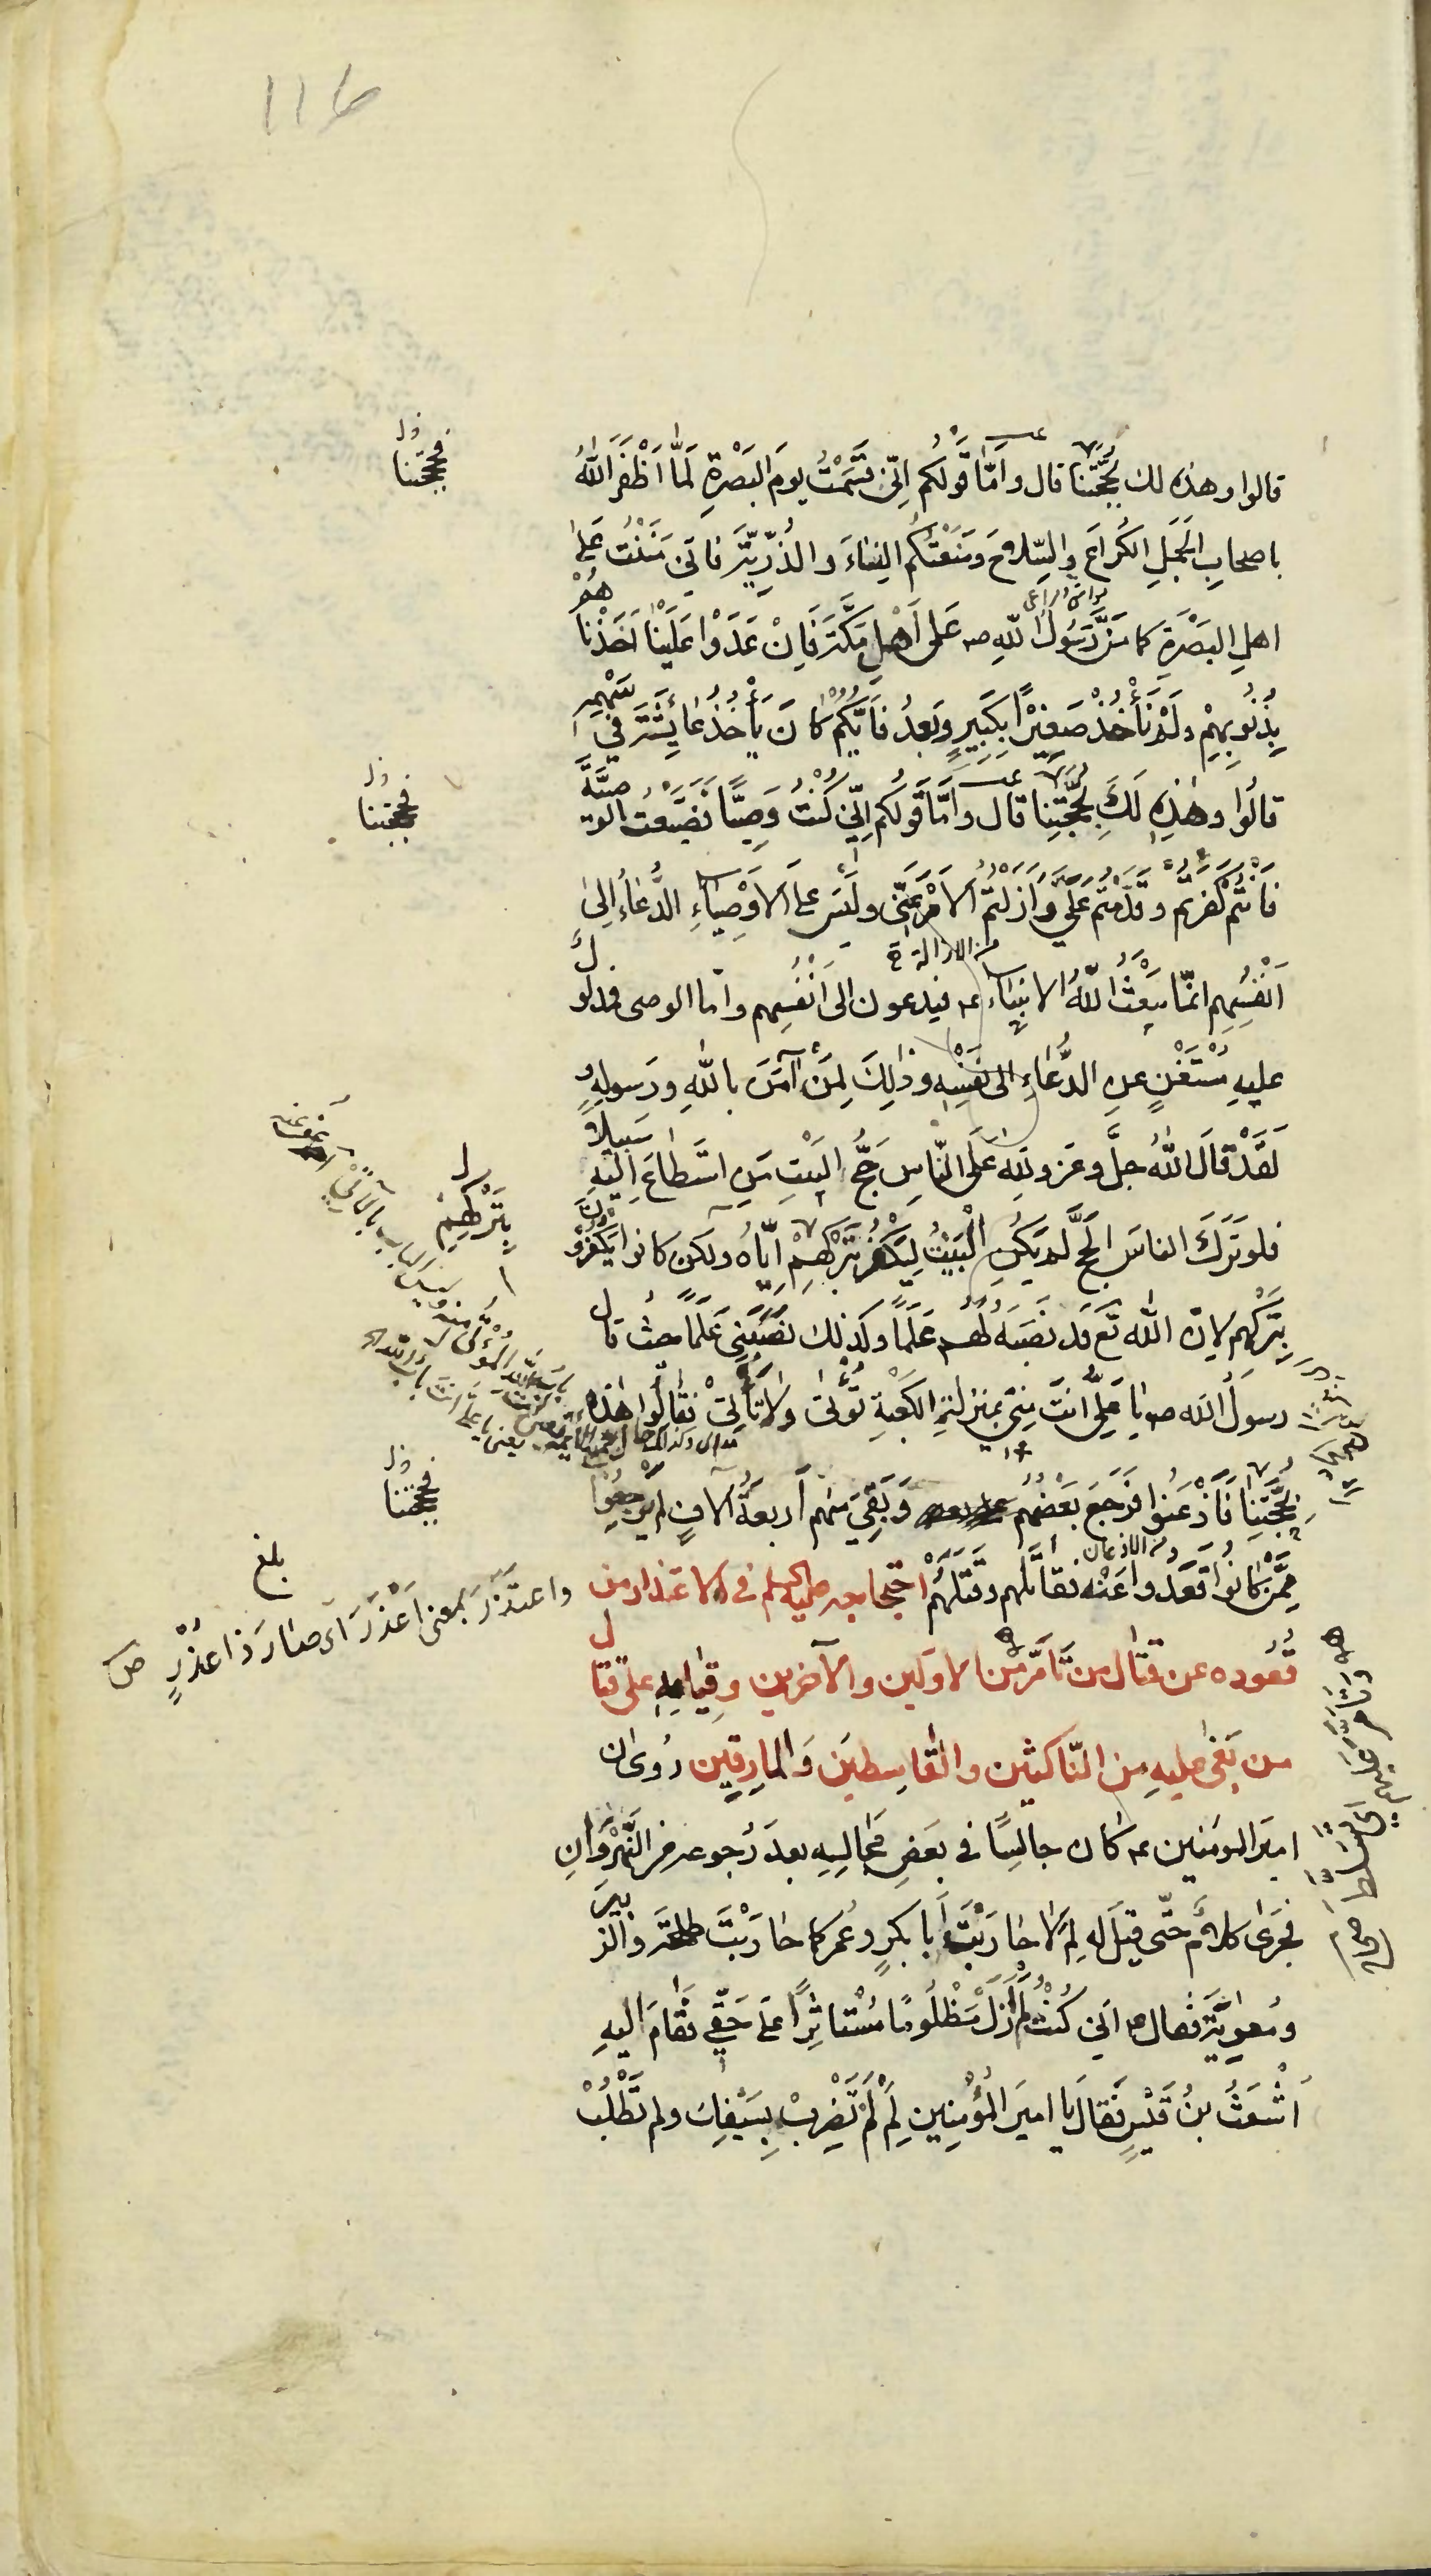 116
قالوا وهذه لك بحجّتنا قال ع وَامَّا قَوْلُكُم اِنّى قَسَمْتُ يومَ البَصْرَةِ لَمَّا اَظْفَرَ اللّٰهُ
باصحابِ الجَمَلِ الكُراعَ والسِّلاحَ ومَنَعْتُكُم النِساءَ والذُرِّيَّةَ فانّى مَنَنْتُ عَلىٰ
اهلِ البَصْرَةِ كما مَنَّ رَسُولُ اللّٰهِ صه عَلى اَهْلِ مَكَّةَ فَاِنْ عَدَوْا عَلَيْنٰا اَخَذْناهُمْ
بِذُنُوبِهِمْ ولَمْ نَأْخُذْ صَغِيْرًا بِكَبِيرٍ وبَعدُ فَاَيُّكُمْ كانَ يَأْخُذُ عٰائِشَةَ في سَهْمِهِ
قالُوا وهٰذِهِ لَكَ بِحُجَّتِنا قال ع وَامَّا قَولُكُم اِنِّي كُنْتُ وَصِيًّا فَضَيَّعْتُ الوَصِيَّةَ
فَاَنْتُم كَفَرْتُم وقَدَّمْتُم عَلَيَّ وَاَزَلْتُمُ الاَمْرَ عَنّى ولَيْسَ على الاَوْصِيٰاءِ الدُّعٰاءُ اِلىٰ
من الازالة
اَنْفُسِهِم انمّا يَبْعَثُ اللّٰهُ الانبيٰاء عه فيدعون الى اَنْفُسِهِم وامّا الوصى فمدلولٌ
عليهِ مُسْتَغْنٍ عنِ الدُّعٰاءِ الى نَفْسِه وذٰلِكَ لِمَنْ آمَنَ باللّٰهِ ورَسولِهِ وَ
لَقَدْ قالَ اللّٰهُ جلَّ وعَز وللّه عَلَى النّاسِ حَجُّ البَيْتِ مَنِ اسْتَطاعَ اِلَيْهِ سَبيلاً
فلو تَرَكَ الناسُ الحَجَّ لَم يَكُنِ الْبَيْتُ لِيَكْفُرَ بِتَرْكِهِمْ اِيّاهُ ولكن كانوا يَكْفُرونَ
بِتَرْكِهِم لانّ اللّٰه تَع قد نَصَبَهُ لَهُم عَلَمًا وكذلك نَصَبَنِي عَلَمًا حيث قال
رسولُ اللّٰه صه يا عَلِيُّ اَنْتَ مِنّى بمنزلةِ الكَعْبَةِ تُؤْتىٰ ولا تَأْتِى فقالُوا هٰذِهِ
بِحُجَّتِنٰا فَاَذْعَنُوا فَرَجَعَ بَعْضُهُم وَبَقِيَ منهم اَربعةُ آلافٍ لم يَرْجِعُوا
من الاذعان
مِمَّنْ كانُوا قَعَدوا عَنْه فقاتَلهم وقَتَلَهُمْ احتجاجه عليه السلم فى الاعتذار من
قُعُوده عن قتال من تَاَمَّرَ من الاولين والآخرين وقِيٰامِهِ على قتال
من بَغىٰ عليهِ مِن النّاكثين والقٰاسِطينَ والمارِقين رُوىَ ان
اميَر المومنين عه كان جالِسًا في بَعْضِ مَجٰالِسِهِ بعدَ رُجوعه من النَّهْرَوٰانِ
فجَرىٰ كلامٌ حتّى قيلَ له لِمَ لا حٰارَبْتَ اَبا بكرٍ وعُمر كما حٰارَبْتَ طلحةَ والزبيرَ
ومُعويةَ فقال ع انّى كُنْتُ لَم اَزَلْ مَظْلُومًا مُسْتاثَرًا عَلىٰ حَقّي فَقامَ اليهِ
اَشْعَثُ بنُ قَيْسٍ فَقالَ يٰا اميرَ المُؤْمِنِين لِمَ لَمْ تَضْرِبْ بِسَيْفِكَ ولم تَطْلُبْ
فحججتنا
فحججتنا
بِتَرْكِهِمْ
فحججتنا
بلغ
واعتذَرَ بمعنى اَعْذَرَ اى صٰارَ ذا عذْرٍ ص
وتَاَمَّرَ عليهم اى تسلط صحاح